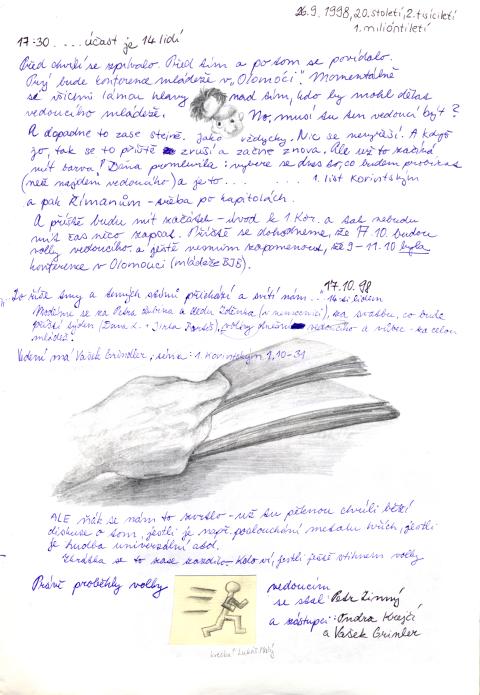 26.9. 1998, 20. století, 2. tisíciletí
1. miliontiletí
17:30 .... účast je 14 lidí
Před chvílí se zpívalo. Před tím a po tom se povídalo.
Prý bude konference mládeže v „Olomóci". Momentálně
si všichni lámou hlavy nad tím, kdo by mohl dělat
vedoucího mládeže. No, musí tu ten vedoucí být?
A dopadne to zase stejně. Jako vždycky. Nic se nevyřeší. A když
jo, tak se to příště zruší a začne znova. Ale už to začíná
mít barvu! Dána promluvila: vybere se dnes to, co budem probírat
(než najdem vedoucího) a je to ........ 1. list Korintským
a pak Římanům - četba po kapitolách.
A příště budu mít začátek - úvod k 1. Kor. a tak nebudu
mít čas něco zapsat. Příště se dohodneme, že 17. 10. budou
volby vedoucího a ještě nesmím zapomenout, že 9 - 11.10 byla
konference v Olomouci (mládeže BJB).
17.10. 98
„Do říše tmy a temných stínů přichází a svítí nám.." 14ti lidem
Modlíme se za Petra Dubina a dědu Zdeňka (v nemocnici), za svatbu, co bude
příští týden (Dana K. + Jirka), volby dnešní vedoucího a vůbec - za celou
mládež!
Vedení má Vašek Grindler, téma: 1. Korintským 1,10-31
ALE ňák se nám to zvrtlo - už tu pěknou chvíli běží
diskuse o tom, jestli je např. poslouchání metalu hřích, jestli
je hudba univerzální atd.
Zkrátka se to zase zazdilo. Kdo ví, jestli ještě stihnem volby
Právě proběhly volby
vedoucím
se stal Petr Zimný
a zástupci: Ondra Krejčí
a Vašek Grinler
kresba: Lukáš